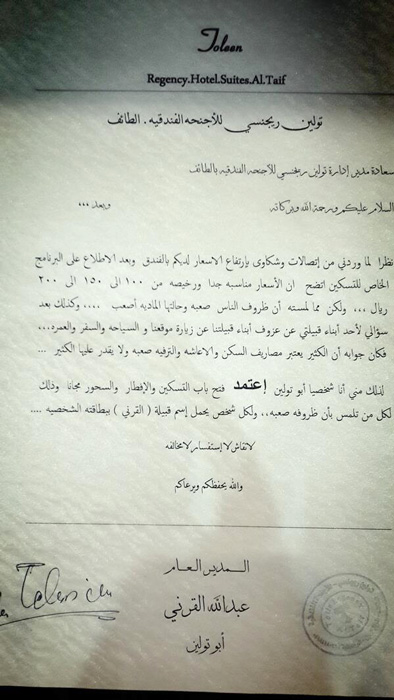 Toleen
Regency.Hotel.Suites.Al.Taif
تولين ريجنسي للأجنحه الفندقيه . الطائف
سعادة مدير إدارة تولين ريجنسي للأجنحه الفندقيه بالطائف
السلام عليكم ورحمة الله وبركاته وبعد ...
نظرا لما وردني من إتصالات وشكاوى بإرتفاع الاسعار لديكم بالفندق وبعد الاطلاع على البرنامج
الخاص للتسكين اتضح ان الأسعار مناسبه جدا ورخيصه من ١٠٠ الى ١٥٠ الى ٢٠٠
ريال ,,, ولكن مما لمسته أن ظروف الناس صعبه وحالتها الماديه أصعب ,,,, وكذلك بعد
سؤالي لأحد أبناء قبيلتي عن عزوف أبناء قبيلتنا عن زيارة موقعنا و السياحه والسفر والعمره,,,
فكان جوابه أن الكثير يعتبر مصاريف السكن والاعاشه والترفيه صعبه ولا يقدر عليها الكثير ...
لذلك مني أنا شخصيا أبو تولين إعتمد فتح باب التسكين والإفطار والسحور مجانا وذلك
لكل من تلمس بأن ظروفه صعبه,, ولكل شخص يحمل إسم قبيلة ( القرني ) ببطاقته الشخصيه ....
لانقاش لا إستفسار لا مخالفه
والله يحفظكم ويرعاكم
المدير العام
عبدالله القرني
أبو تولين